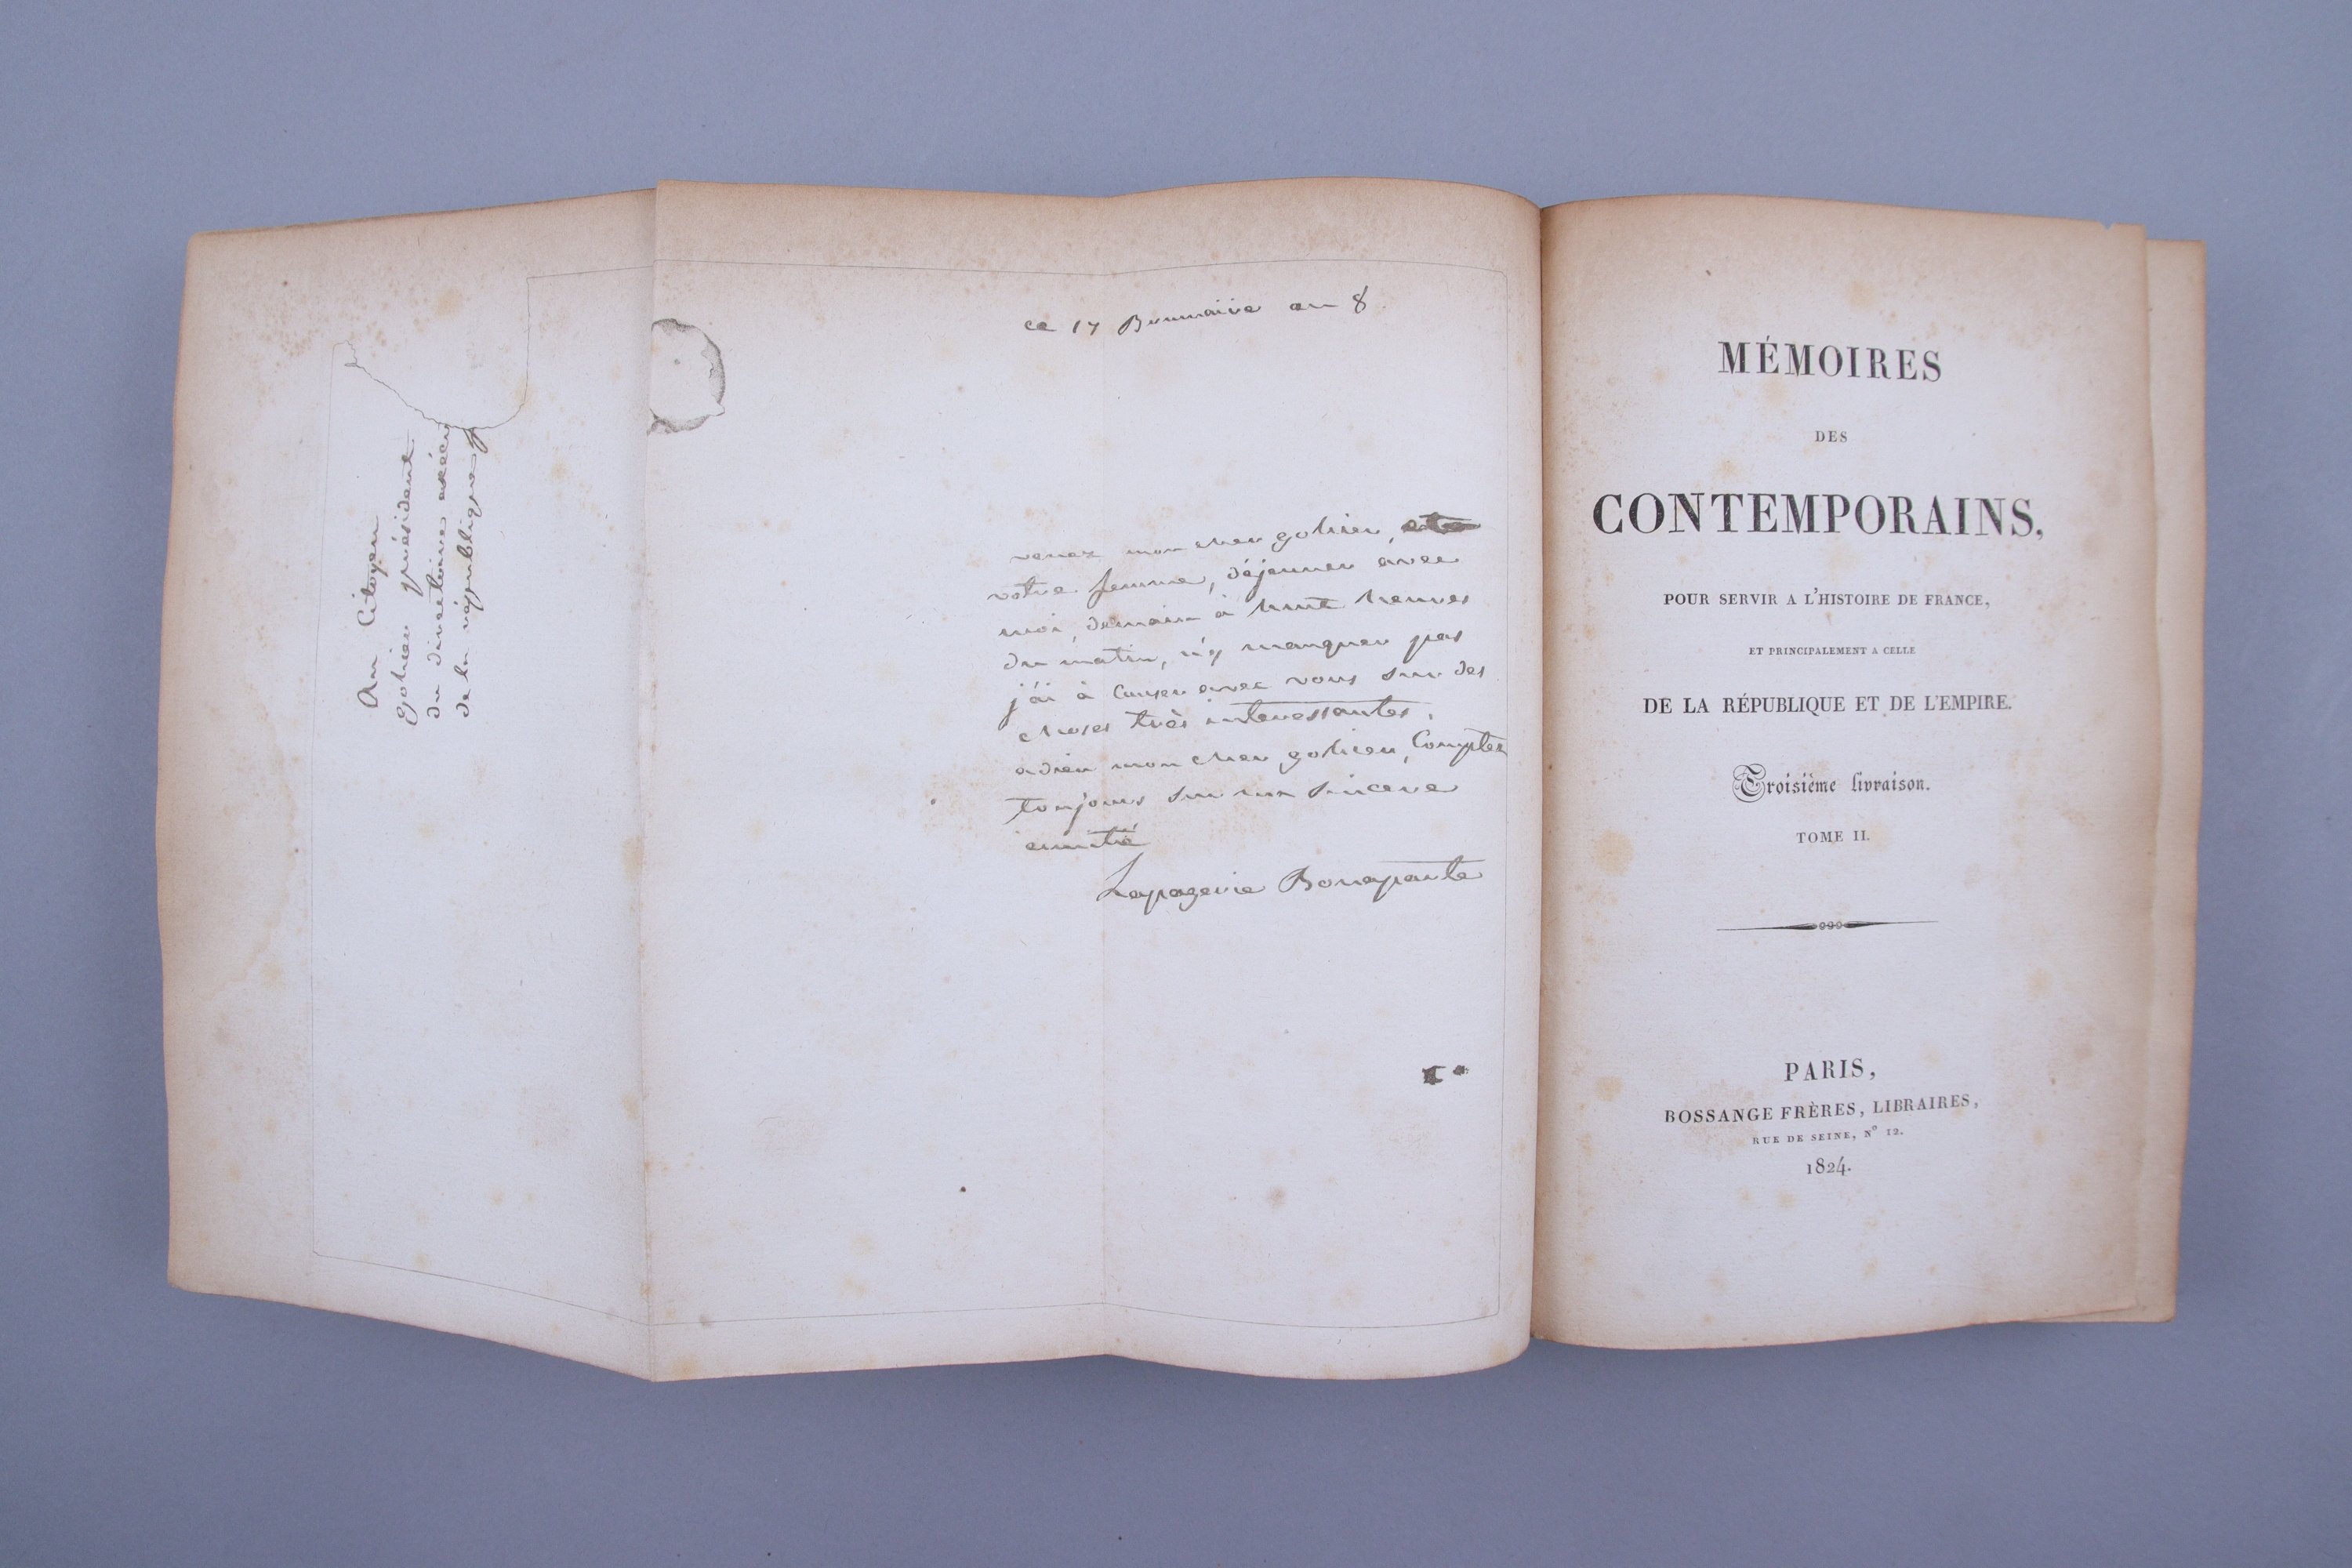 Au Citoyen
gohier président
du directoire exécu
de la république
ce 17 Brumaire an 8.
venez mon cher gohier, et
votre femme, déjeuner avec
moi, demain à huit heures
du matin, n'y manquer pas
j'ai à causer avec vous sur des
choses très interessantes.
adieu mon cher gohier, Comptez
toujours sur ma sincere
amitié
Lapagerie Bonaparte
MÉMOIRES
DES
CONTEMPORAINS,
POUR SERVIR A L'HISTOIRE DE FRANCE,
ET PRINCIPALEMENT A CELLE
DE LA RÉPUBLIQUE ET DE L'EMPIRE.
Troisième livraison.
TOME II.
PARIS,
BOSSANGE FRÈRES, LIBRAIRES,
RUE DE SEINE, Nº 12.
1824.